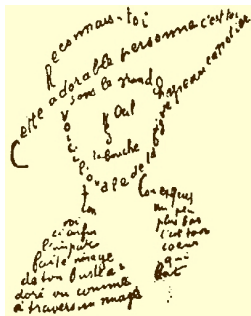 Reconnais-toi
Cette adorable personne c'est toi
Sous le grand chapeau canotier
Œil
Nez
La bouche
Voici l'ovale de ta figure
Ton cou exquis
Voici enfin
l'imparfaite image
de ton buste a
doré vu comme
à travers un nuage
Un peu
plus bas
c'est ton
cœur
qui
bat